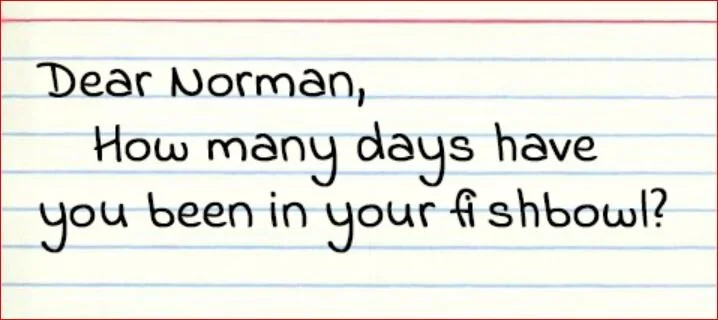 Dear Norman,
How many days have
you been in your fishbowl?